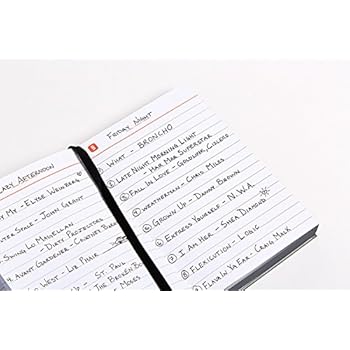 LAZY AFTERNOON
MY MY - ELYSE WEINBERG
OUTER SPACE - JOHN GRANT
SWING LO MAGELLAN
- DIRTY PROJECTORS
4. AVANT GARDENER - COURTNEY BARN
WEST - LIZ PHAIR
ST. PAUL
THE BROKEN BO
MOSES
FRIDAY NIGHT
WHAT - BRONCHO
2 LATE NIGHT MORNING LIGHT
- HAR MAR SUPERSTAR
3 FALL IN LOVE - GOLDLINK, CISERO
4 WEATHERMAN - CHRIS MILES
5 GROWN UP - DANNY BROWN
6 EXPRESS YOURSELF - N.W.A.
7 I AM HER - SHEA DIAMOND
8 FLEXICUTION - LOGIC
9 FLAVA IN YA EAR - CRAIG MACK